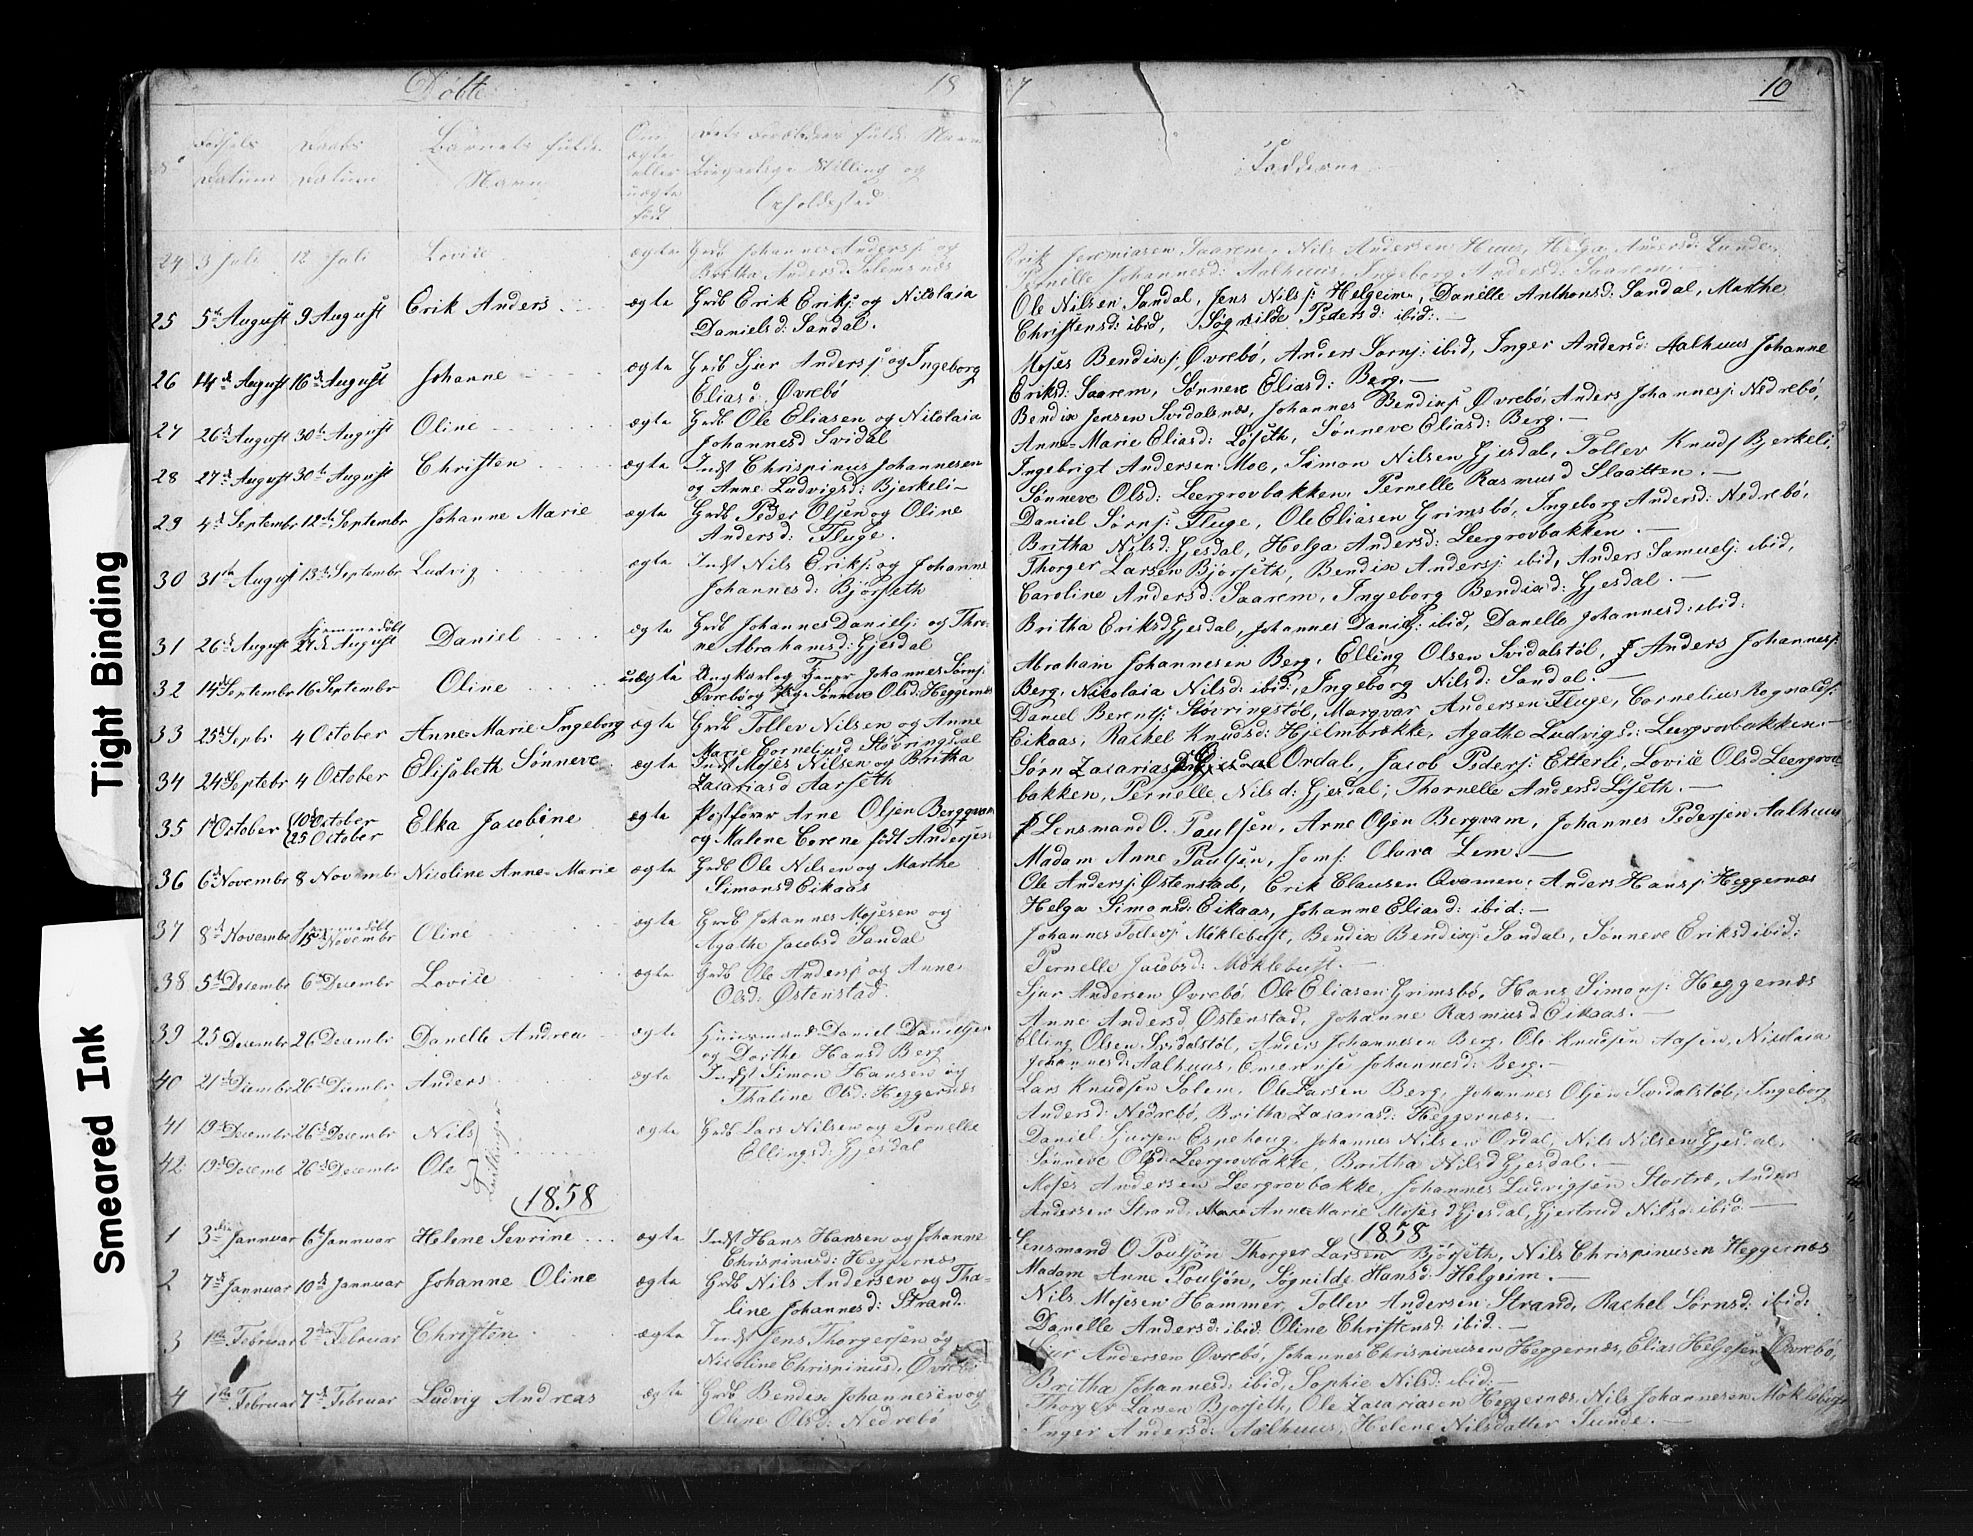 Døbte 18
Fødsels Daabs Barnets fulde Om Dets Forældres fulde Navn
Datum Datum Navn ægte Borgerlige Stilling og
eller Opholdssted
uægte
født
24 3 Juli 12 Juli Lovise ægte Grdb Johannes Andersj og
Britha Andersd Solemsnæs
25 5te August 9 August Erik Anders ægte Grdb Erik Eriksj og Nikolaia
Danielsd: Sandal.
26 14de August 16de August Johanne ægte Grdb Sjur Andersj og Ingeborg
Eliasd. Øvrebö
27 26de August 30te August Oline ægte Grdb Ole Eliasen og Nikolaia
Johannesd Svidal
28 27de August 30te August Christen ægte Indst Chrispinus Johannesen
og Anne Ludvigsd: Bjerkeli
29 4de Septembr 12te Septembr Johanne Marie ægte Grdb Peder Olsen og Oline
Andersd: Fluge.
30 31te August 13de Septembr Ludvig ægte Indst Nils Eriksj og Johanne
Johannesd: Björseth
31 26de August hjemmedöbt 27de August Daniel ægte Grdb Johannes Danielsj og Tho-
ne Abrahamsd: Gjesdal
32 14de Septembr 16 Septembr Oline uægte Ungkarl og Johannes Sörnsj:
Övrebö og Pige Sönneve Olsd: Heggernæs
33 25de Septbr 4 October Anne Marie Ingeborg ægte Grdb Tollev Nilsen og Anne
Marie Corneliusd Stövringsdal
34 24de Septebr 4 October Elisabeth Sönneve ægte Indst Moses Nilsen og Britha
Zacariasd Aarseth
35 1de October 10de October 25 October Elka Jacobine ægte Postförer Arne Olsen Bergqvam
og Malene Cerene født Andersen
36 6te Novembr 8 Novembr Nicoline Anne-Marie ægte Grdb Ole Nilsen og Marthe
Simonsd Eikaas
37 8de Novembr hjemmedöbt 15de Novembr Oline ægte Grdb Johannes Mosesen og
Agathe Jacobsd Sandal
38 5te Decembr 6te Decembr Lovise ægte Grdb Ole Andersj og Anne
Olsd: Østenstad.
39 25 Decembr 26 Decembr Danelle Andrea ægte Huusmand Daniel Danielsen
og Dorthe Hansd Berg
40 21de Decembr 26de Decembr Anders ægte Indst Simon Hansen og
Thaline Olsd: Heggernæs
41 19de Decembr 26de Decembr Nils ægte Grdb Lars Nilsen og Pernelle
Ellingsd: Gjesdal
42 19de Decemb 26de Decembr Ole Tvillinger
1858
1 3die Januar 6te Januar Helene Sevrine ægte Indst Hans Hansen og Johanne
Chrispinusd: Heggernæs
2 7de Januar 10de Januar Johanne Oline ægte Grdb Nils Andersen og Tha-
line Johannesd: Strand
3 1ste Februar 2de Februar Christen ægte Indst Jens Thorgersen og
Nicoline Chrispinusd. Övrebö
4 1ste Februar 7de Februar Ludvig Andreas ægte Grdb Bendix Johannesen og
Oline Olsd: Nedrebö
7 10
Fadderne
Erik Jeremiasen Saarem, Nils Andersen Huus, Helga Andersd: Lunde,
Pernelle Johannesd: Aalhuus, Ingeborg Andersd: Saarem.
Ole Nilsen Sandal, Jens Nilsj: Helgeim, Danelle Anthonsd: Sandal, Marthe
Christensd: ibid, Sögnilde Pedersd: ibid:
Moses Bendixj: Øvrebö, Anders Sörnsj: ibid, Inger Andersd: Aalhuus Johanne
Eriksd: Saarem, Sönneve Eliasd: Berg.
Bendix Jensen Svidalsnæs, Johannes Bendixsj Øvrebö, Anders Johannesj: Nedrebö,
Anne-Marie Eliasd: Löseth, Sönneve Eliasd: Berg.
Ingebrigt Andersen Moe, Simon Nilsen Gjesdal, Tollev Knudsj Bjerkeli,
Sönneve Olsd: Leergrovbakken, Pernelle Rasmusd Slaatten.
Daniel Sörnsj: Fluge, Ole Eliasen Grimsbö, Ingeborg Andersd: Nedrebö,
Britha Nilsd: Gjesdal, Helga Andersd: Leergrovbakken.
Thorger Larsen Björseth, Bendix Andersj ibid, Anders Samuelsj ibid,
Caroline Andersd: Saarem, Ingeborg Bendixsd: Gjesdal.
Britha Eriksd Gjesdal, Johannes Danielsj: ibid, Danelle Johannesd: ibid:
Abraham Johannesen Berg, Elling Olsen Svidalstöl, Anders Johannesj:
Berg, Nikolaia Nilsd: ibid:, Ingeborg Nilsd: Sandal.
Daniel Berentsj: Stövringstöl, Margvar Andersen Fluge, Cornelius Rognaldsj:
Eikaas, Rachel Knudsd: Hjelmbrække, Agathe Ludvigsd: Leergrovbakken.
Sörn Zacariasen Ordal, Jacob Pedersj Etterli, Lovise Olsd Leergrov-
bakken, Pernelle Nilsd: Gjesdal, Thornelle Andersd Löseth.
Lensmand O. Paulsen, Arne Olsen Bergvam, Johannes Pedersen Aalhuus
Madam Anne Paulsen, Jomf: Olava Lem.
Ole Andersj: Østenstad, Erik Clausen Qvamen, Anders Hansj Heggernæs
Helga Simonsd: Eikaas, Johanne Eliasd: ibid:
Johannes Tollevsj Möklebust, Bendix Bendixsj: Sandal, Sönneve Eriksd ibid:
Pernelle Jacobsd: Möklebust.
Sjur Andersen Øvrebö, Ole Eliasen Grimsbö, Hans Simonsj: Heggernæs
Anne Andersd Østenstad, Johanne Rasmusd Eikaas.
Elling Olsen Svidalstöl, Anders Johannesen Berg, Ole Knudsen Aasen, Nicolaia
Johannesd: Aalhuus, Emerense Johannesd: Berg.
Lars Knudsen Solem, Ole Larsen Berg, Johannes Olsen Svidalstöl, Ingeborg
Andersd: Nedrebö, Britha Zacariasd: Heggernæs.
Daniel Sjursen Espehoug, Johannes Nilsen Ordal, Nils Nilsen Gjesdal,
Sönneve Olsd: Leergrovbakke, Britha Nilsd Gjesdal.
Moses Andersen Leergrovbakke, Johannes Ludvigsen Stortræ, Anders
Andersen Strand, Anne Marie Mosesd Gjesdal, Gjertrud Nilsd: ibid.
1858
Lensmand O. Poulsön, Thorger Larsen Björseth, Nils Chrispinusen Heggernæs
Madam Anne Poulsön, Sögnilde Hansd: Helgeim.
Nils Mosesen Hammer, Tollev Andersen Strand, Rachel Sörnsd: ibid:
Danelle Andersd: ibid: Oline Christensd: ibid.
Sjur Andersen Øvrebö, Johannes Chrispinusen Heggernæs, Elias Helgesen Øvrebö,
Britha Johannesd: ibid, Sophie Nilsd: ibid:
Thorger Larsen Björseth, Ole Zacariasen Heggernæs, Nils Johannesen Möklebust
Inger Andersd: Aalhuus, Helene Nilsdatter Sunde.
Tight Binding
Smeared Ink